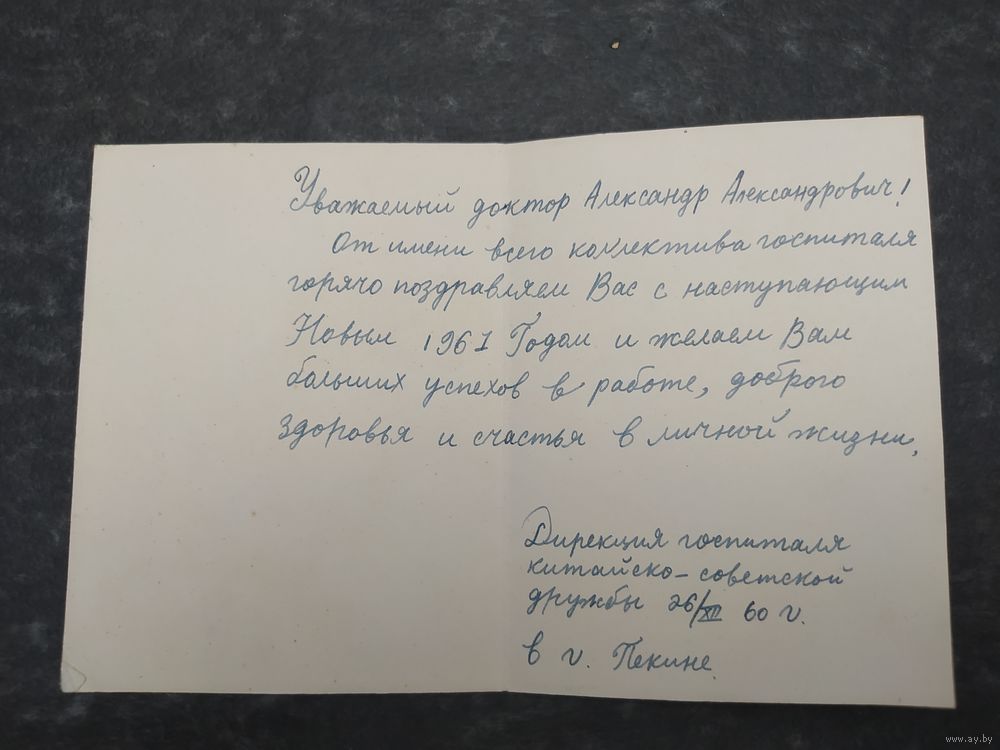 Уважаемый доктор Александр Александрович!
От имени всего коллектива госпиталя
горячо поздравляем Вас с наступающим
Новым 1961 Годом и желаем Вам
больших успехов в работе, доброго
здоровья и счастья в личной жизни.
Дирекция госпиталя
китайско-советской
дружбы 26/XII 60 г.
в г. Пекине
www.ay.by